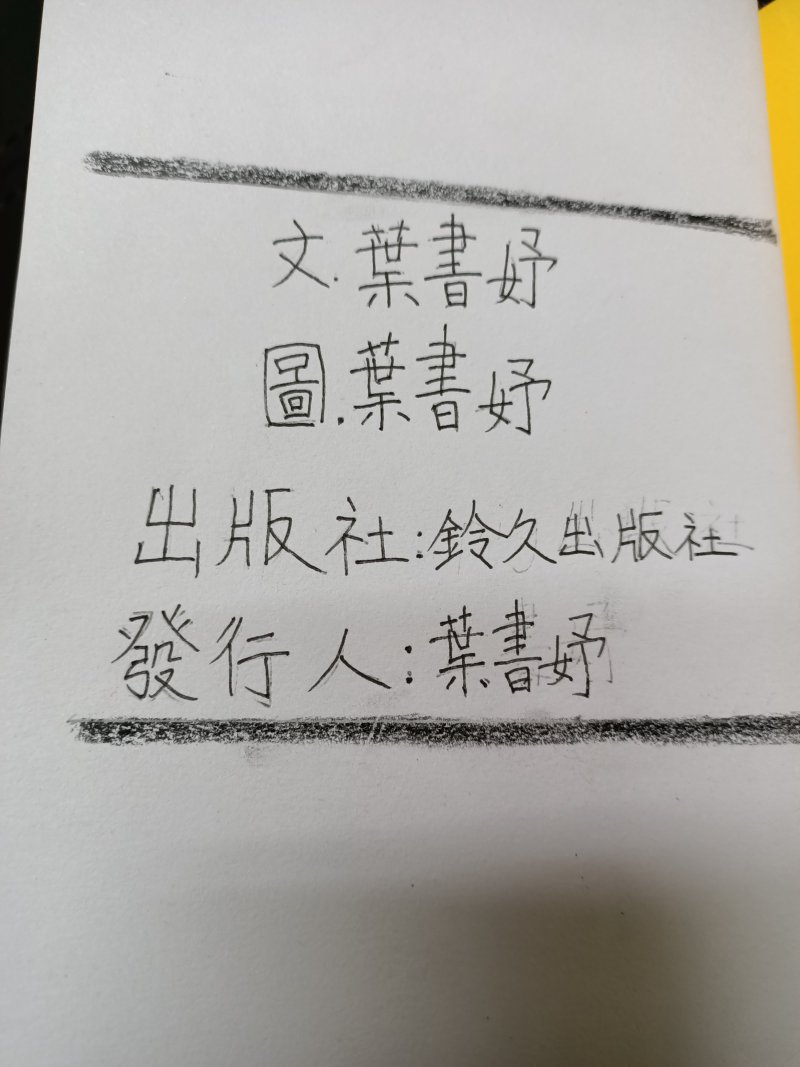 文.葉書妤
圖.葉書妤
出版社:鈴久出版社
發行人:葉書妤